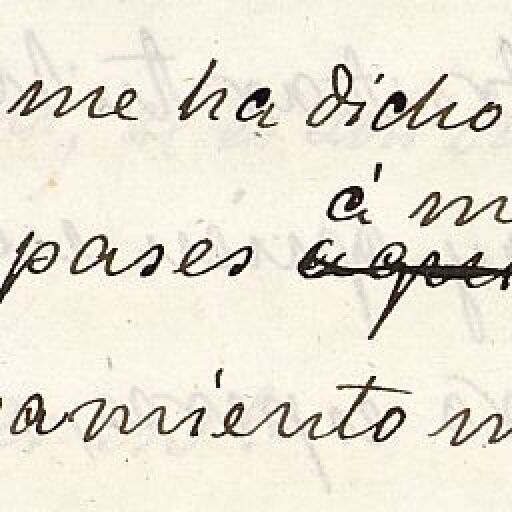 me ha dicho
á m
pases aqui
amiento m